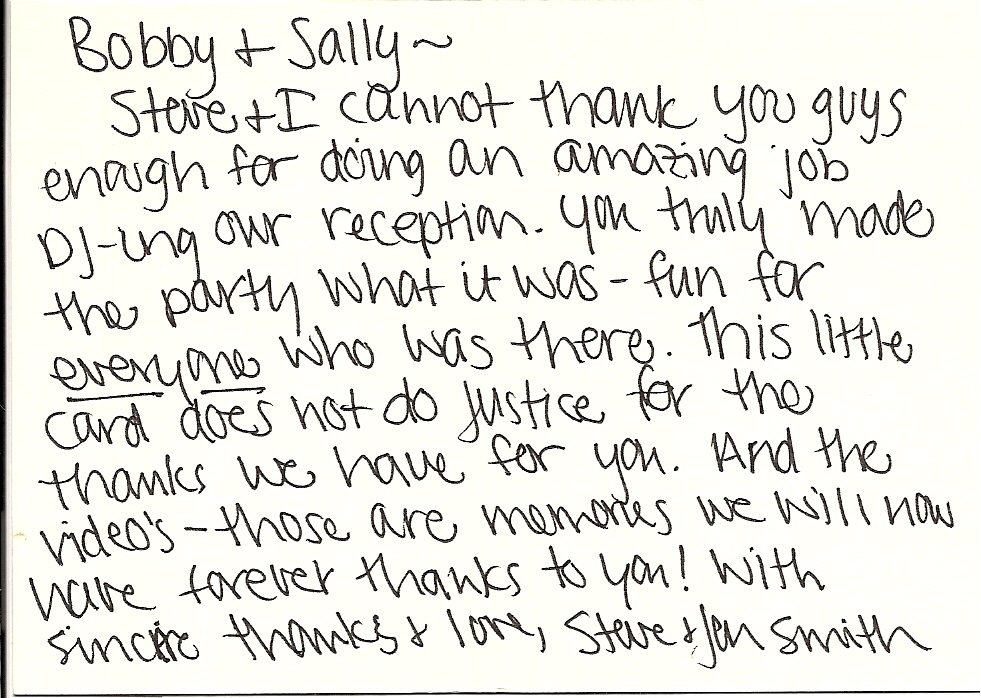 Bobby + Sally~
Steve + I cannot thank you guys
enough for doing an amazing job
DJ-ing our reception. You truly made
the party what it was - fun for
everyone who was there. This little
card does not do justice for the
thanks we have for you. And the
video's - those are memories we will now
have forever thanks to you! With
sincere thanks + love, Steve + Jen Smith